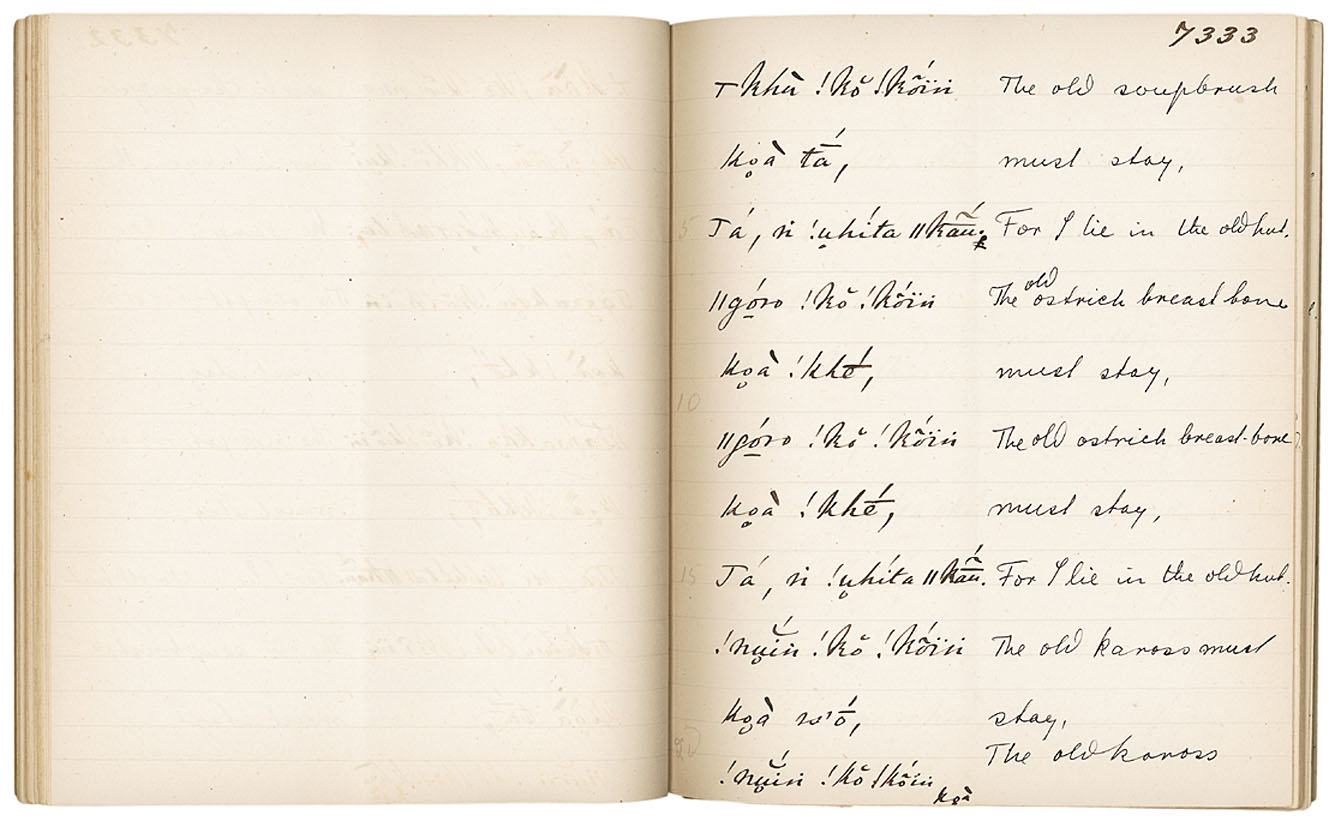 7333
⊤khù !kŏ !kṍïṅ The old soupbrush
kọà tā́, must stay,
5 Tá, ṅ !ụhíta ǁkā̃ű; For I lie in the old hut.
ǁgó̱ro !kŏ !kṍïṅ The old ostrich breast bone
kọà !khé̄, must stay,
10
ǁgó̱ro !kŏ !kṍïṅ The old ostrich breast-bone
kọà !khé̄, must stay,
15 Tá, ṅ !ụhíta ǁkā̃ű. For I lie in the old hut.
!nụ̆íṅ !kŏ !kṍïṅ The old kaross must
kọà ss'ṓ, stay,
20 The old kaross
!nụ̆íṅ !kŏ !kṍïṅ
kọà